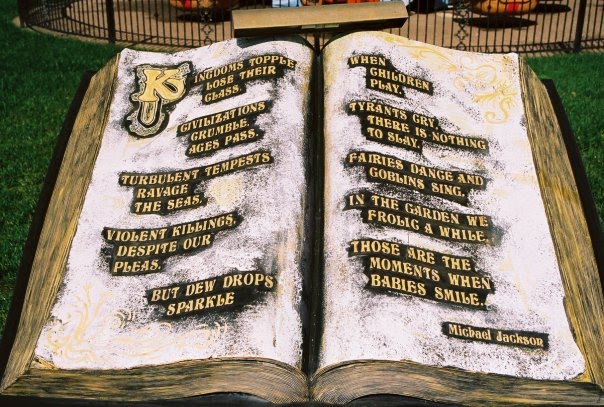 KINGDOMS TOPPLE
LOSE THEIR
CLASS.
CIVILIZATIONS
CRUMBLE.
AGES PASS.
TURBULENT TEMPESTS
RAVAGE
THE SEAS.
VIOLENT KILLINGS,
DESPITE OUR
PLEAS.
BUT DEW DROPS
SPARKLE
WHEN
CHILDREN
PLAY.
TYRANTS CRY,
THERE IS NOTHING
TO SLAY.
FAIRIES DANCE AND
GOBLINS SING,
IN THE GARDEN WE
FROLIC A WHILE.
THOSE ARE THE
MOMENTS WHEN
BABIES SMILE.
Michael Jackson